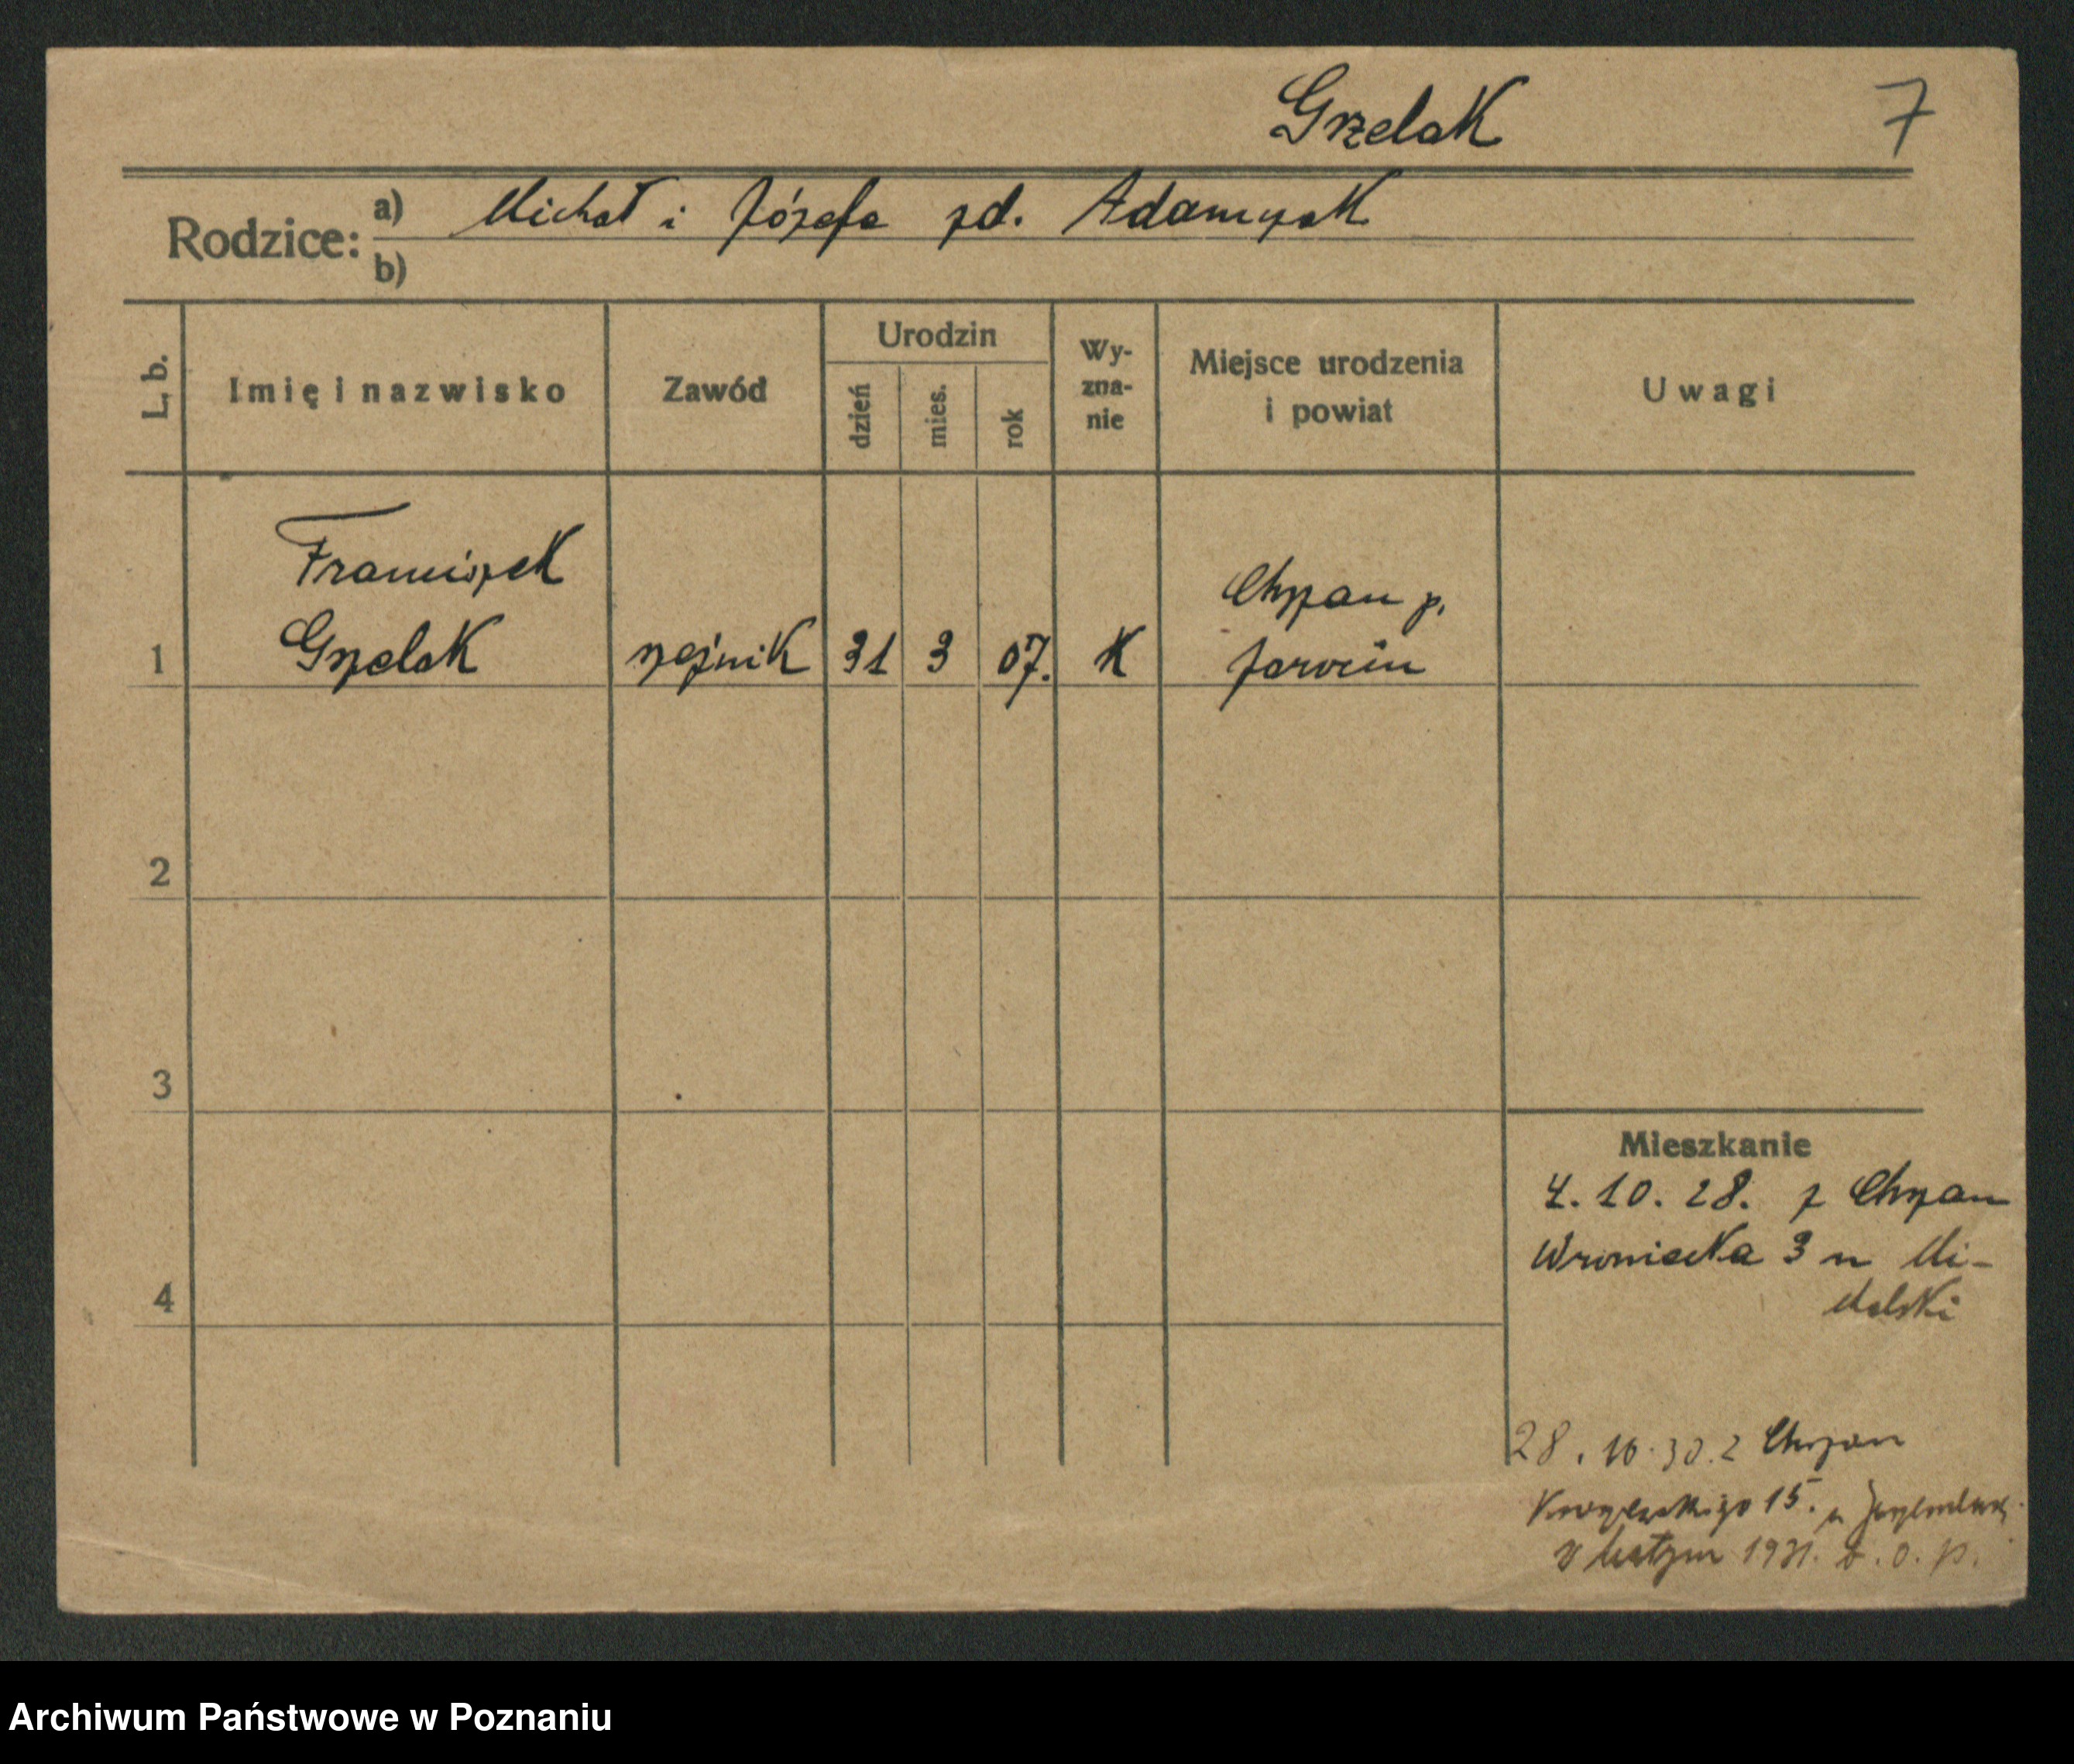 Grzelak 7
Rodzice: a) Michał i Józefa zd. Adamczak
b)
L. b.
Imię i nazwisko
Zawód
Urodzin
dzień
mies.
rok
Wy-
zna-
nie
Miejsce urodzenia
i powiat
Uwagi
Franciszek Chrzan p.
1 Grzelak rzeźnik 31 3 07. K Jarocin
2
3
4
Mieszkanie
4. 10. 28. z Chrzan
Wroniecka 3 u Mi-
chalski
28. 10. 30. z Chrzan
15. u
w lutym 1931. d. o. p.
Archiwum Państwowe w Poznaniu